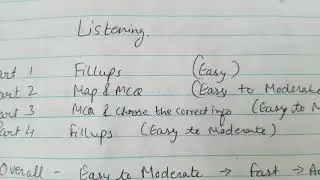 Listening
art 1 Fillups (Easy)
Part 2 Map & MCQ (Easy to Moderate
Part 3 MCQ & Choose the correct info (Easy to M
Part 4 Fillups (Easy to Moderate)
Overall - Easy to Moderate → Fast → A